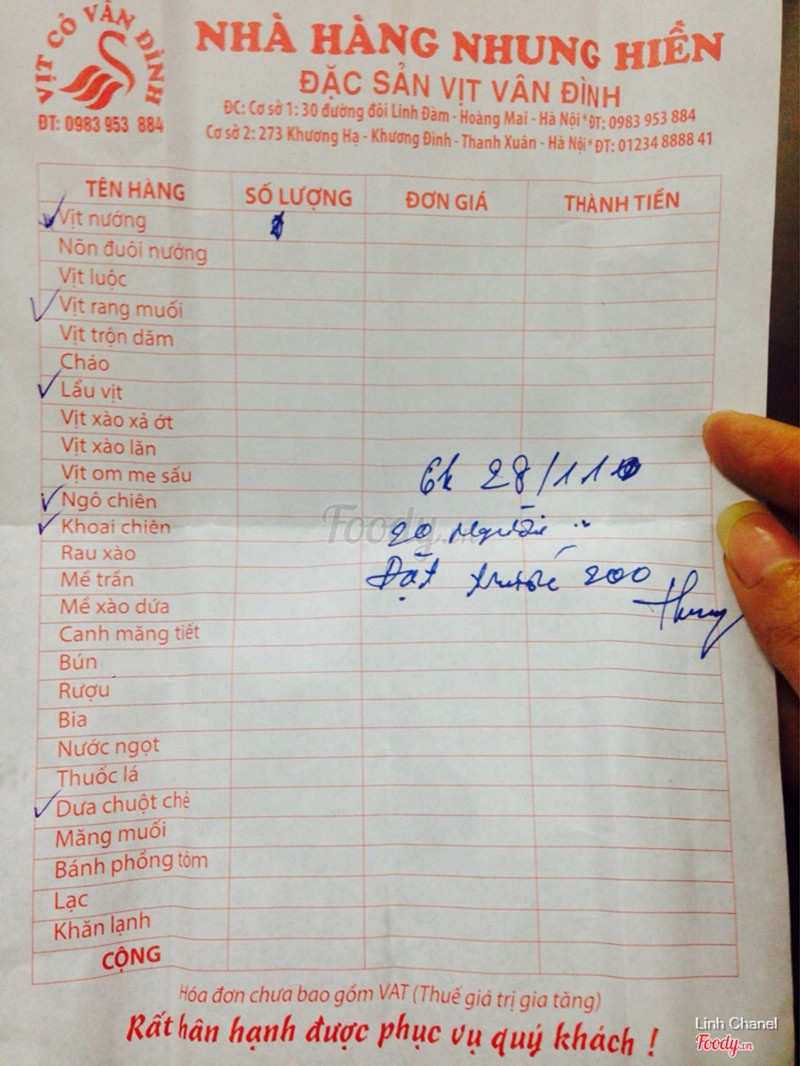 VỊT CỎ VÂN ĐÌNH
ĐT: 0983 953 884
NHÀ HÀNG NHUNG HIỀN
ĐẶC SẢN VỊT VÂN ĐÌNH
ĐC: Cơ sở 1: 30 đường đôi Linh Đàm - Hoàng Mai - Hà Nội * ĐT: 0983 953 884
Cơ sở 2: 273 Khương Hạ - Khương Đình - Thanh Xuân - Hà Nội * ĐT: 01234 8888 41
TÊN HÀNG SỐ LƯỢNG ĐƠN GIÁ THÀNH TIỀN
Vịt nướng
Nõn đuôi nướng
Vịt luộc
Vịt rang muối
Vịt trộn dăm
Cháo
Lẩu vịt
Vịt xào xả ớt
Vịt xào lăn
Vịt om me sấu
Ngô chiên
Khoai chiên
Rau xào
Mề trần
Mề xào dứa
Canh măng tiết
Bún
Rượu
Bia
Nước ngọt
Thuốc lá
Dưa chuột chẻ
Măng muối
Bánh phồng tôm
Lạc
Khăn lạnh
CỘNG
6h 28/11
20 người
Đặt trước 200
Foody.vn
Hóa đơn chưa bao gồm VAT (Thuế giá trị gia tăng)
Rất hân hạnh được phục vụ quý khách !
Linh Chanel
Foody.vn